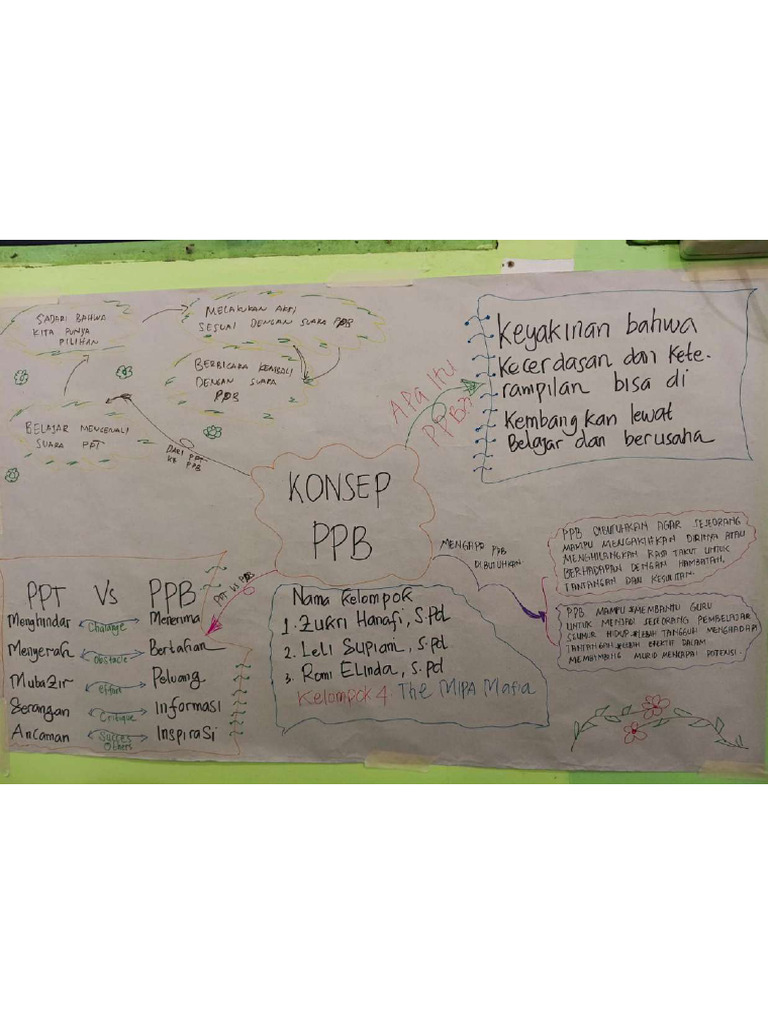 KONSEP
PPB
SADARI BAHWA
KITA PUNYA
PILIHAN
MELAKUKAN AKSI
SESUAI DENGAN SUARA PPB
BERBICARA KEMBALI
DENGAN SUARA
PPB
BELAJAR MENGENALI
SUARA PPT
DARI PPT
KE PPB
Apa itu
PPB??
Keyakinan bahwa
Kecerdasan dan Kete-
rampilan bisa di
Kembangkan lewat
Belajar dan berusaha
MENGAPA PPB
DIBUTUHKAN
PPB DIBUTUHKAN AGAR SESEORANG
MAMPU MENGAKTIFKAN DIRINYA ATAU
MENGHILANGKAN RASA TAKUT UNTUK
BERHADAPAN DENGAN HAMBATAN,
TANTANGAN DAN KESULITAN.
PPB MAMPU MEMBANTU GURU
UNTUK MENJADI SESEORANG PEMBELAJAR
SEUMUR HIDUP LEBIH TANGGUH MENGHADAPI
TANTANGAN LEBIH EFEKTIF DALAM
MEMBIMBING MURID MENCAPAI POTENSI.
PPT Vs PPB
PPT VS PPB
Menghindar Chalange Menerima
Menyerah Obstacle Bertahan
Mubazir effort Peluang
Serangan Critique Informasi
Ancaman Succes Others Inspirasi
Nama Kelompok
1. Zukri Hanafi, S.Pd
2. Leli Supiani, S.pd
3. Romi Elinda, S.pd
Kelompok 4. The MIPA Mafia